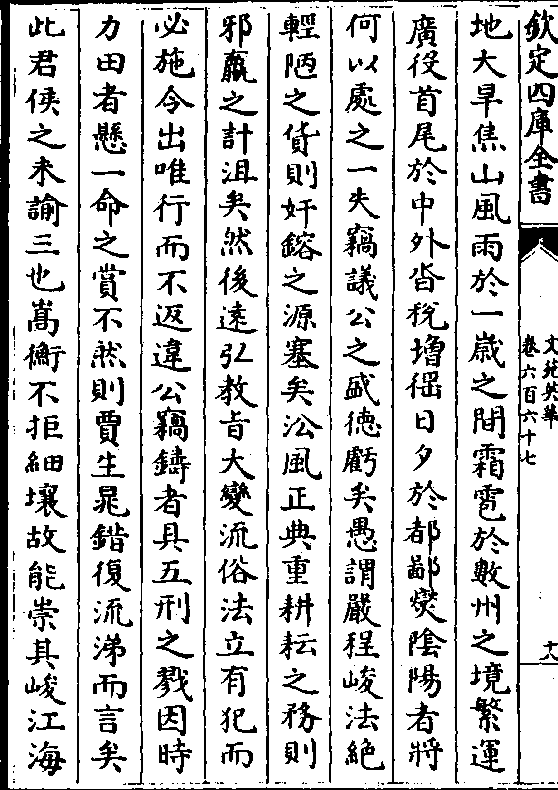 欽定四庫全書
文苑英華
卷六百六十七
十八
地大旱焦山風雨於一歲之間霜雹於數州之境繁運
廣役首尾於中外沓稅增徭日夕於都鄙爕隂陽者將
何以處之一失竊議公之盛徳虧矣愚謂嚴程峻法絶
輕陋之貨則奸鎔之源塞矣㳂風正典重耕耘之務則
邪羸之計沮矣然後逺弘教旨大變流俗法立有犯而
必施令出唯行而不返違公竊鑄者具五刑之戮因時
力田者懸一命之賞不然則賈生晁錯復流涕而言矣
此君侯之未諭三也嵩衡不拒細壤故能崇其峻江海